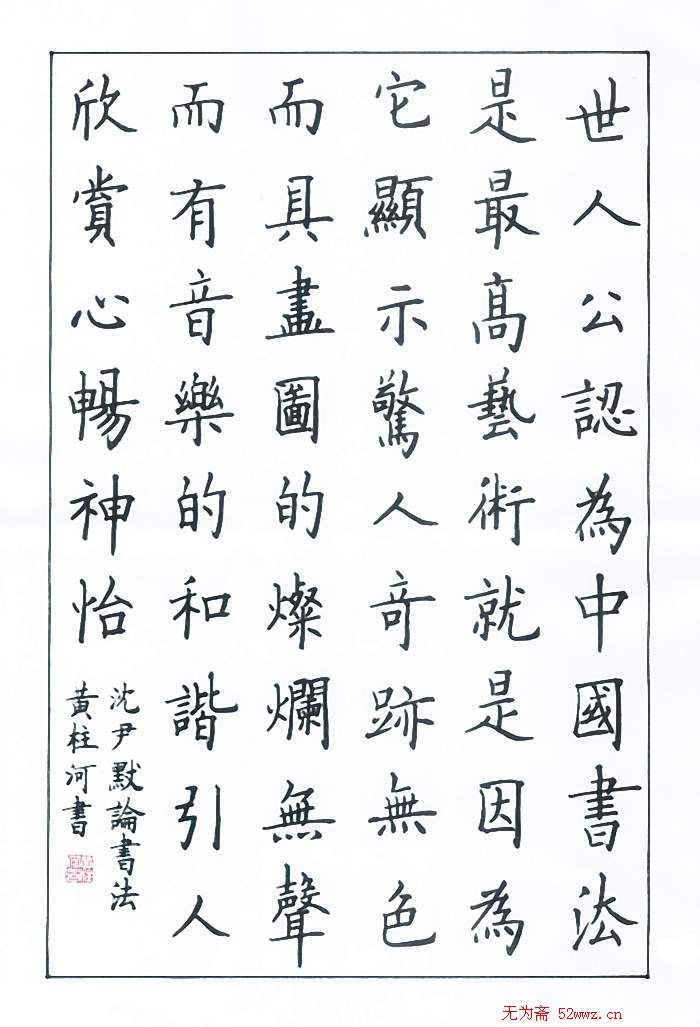 世人公認為中國書法
是最高藝術就是因為
它顯示驚人奇跡無色
而具畫圖的燦爛無聲
而有音樂的和諧引人
欣賞心暢神怡
沈尹默論書法
黄柱河書
无为斋 52wwz.cn